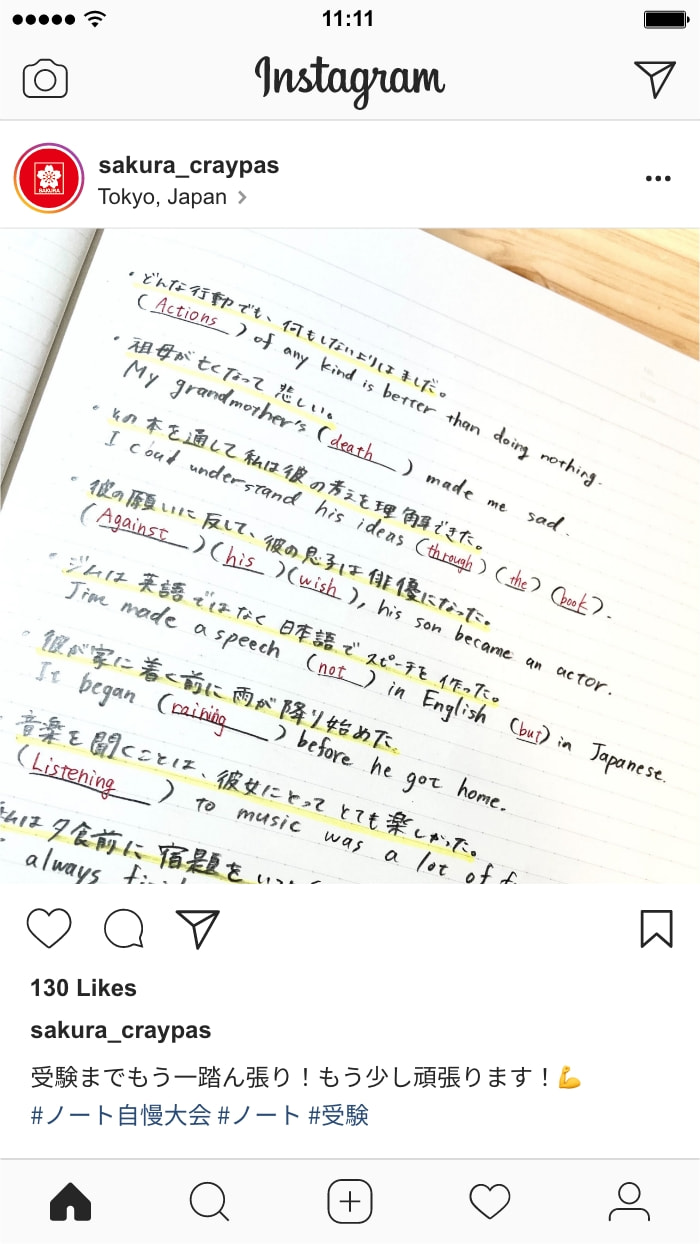 11:11
Instagram
sakura_craypas
Tokyo, Japan
SAKURA
・どんな行動でも、何もしないよりはましだ。
(Actions) of any kind is better than doing nothing.
・祖母が亡くなって悲しい。
My grandmother's (death) made me sad.
・その本を通して私は彼の考えを理解できた。
I coud understand his ideas (through) (the) (book).
・彼の願いに反して、彼の息子は俳優になった。
(Against)(his)(wish), his son became an actor.
・ジムは英語ではなく日本語でスピーチを作った。
Jim made a speech (not) in English (but) in Japanese.
・彼が家に着く前に雨が降り始めた。
It began (raining) before he got home.
・音楽を聞くことは、彼女にとってとても楽しかった。
(Listening) to music was a lot of f
私は夕食前に宿題をいつ
always fini
130 Likes
sakura_craypas
受験までもう一踏ん張り！もう少し頑張ります！💪
#ノート自慢大会 #ノート #受験